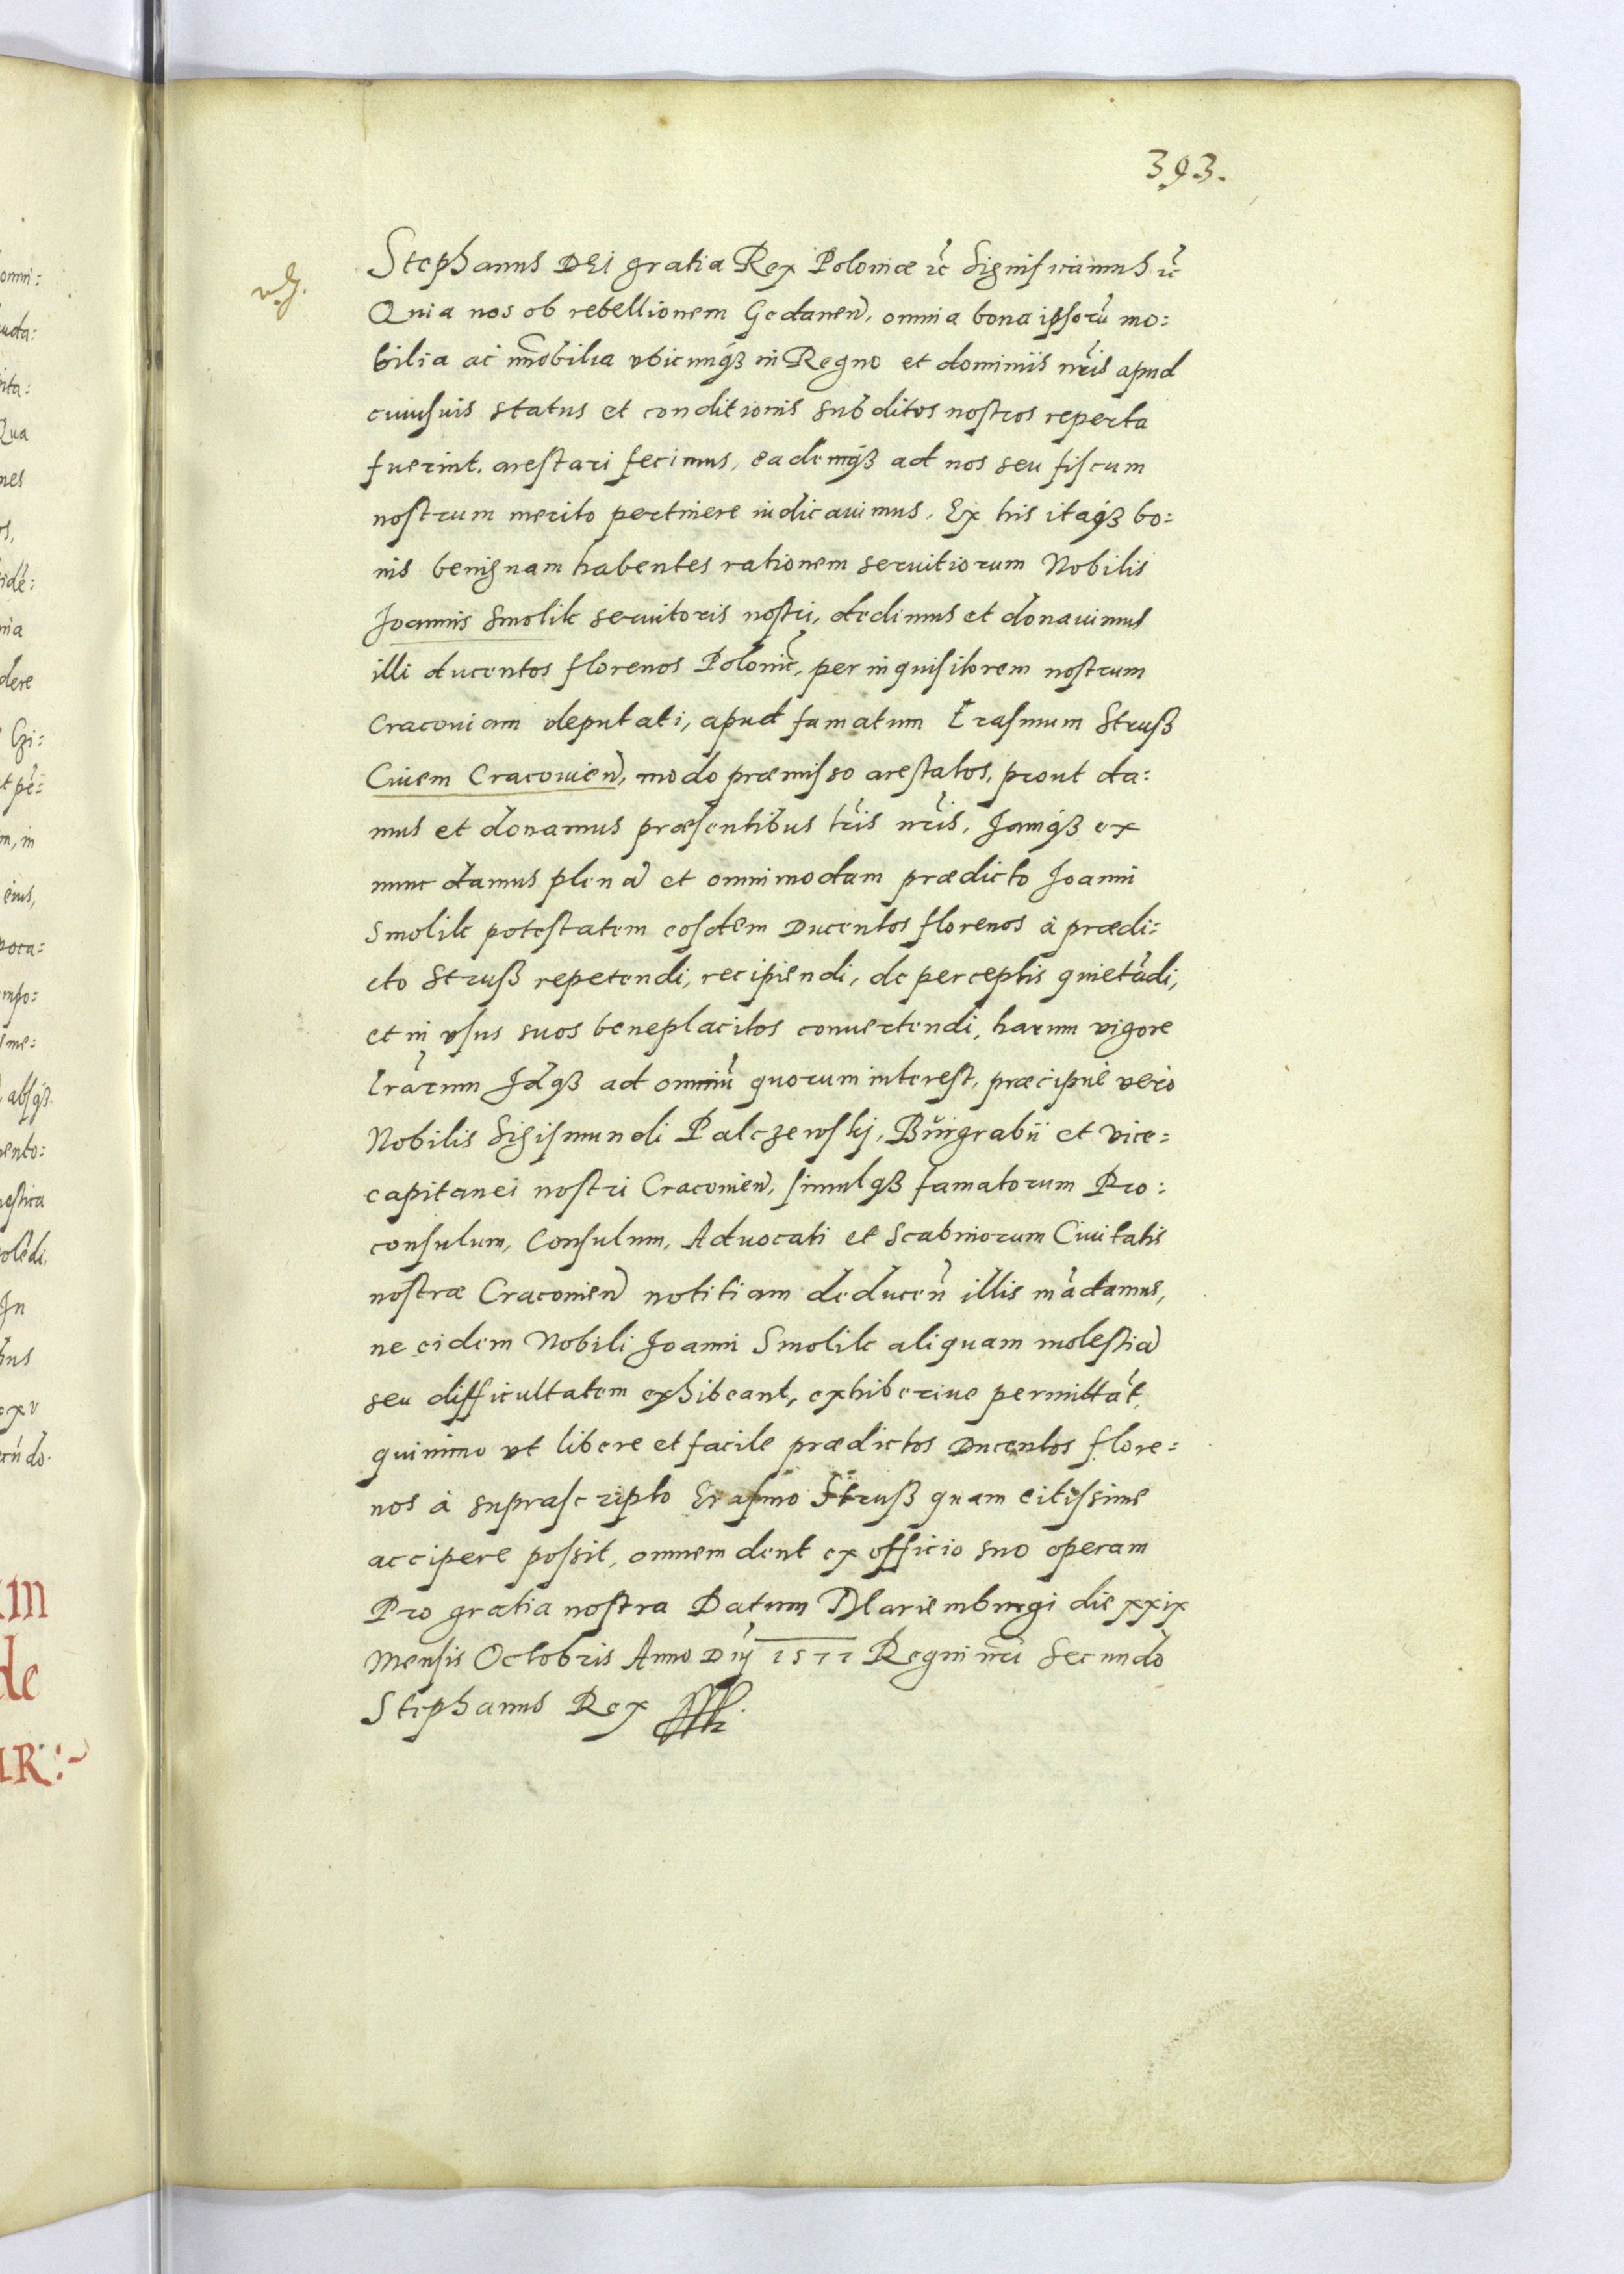 393.
Stephanus DEI gratia Rex Poloniæ ꝛc̃ Significamus ꝛc̃
Quia nos ob rebellionem Gedanen̄, omnia bona ipsorū mo:
bilia ac im̄obilia vbicunqꝫ in Regno et dominiis nr̃is apud
cuiusuis status et conditionis subditos nostros reperta
fuerint. arestari fecimus, eademqꝫ ad nos seu fiscum
nostrum merito pertinere iudicauimus. Ex his itaqꝫ bo:
nis benignam habentes rationem seruitiorum Nobilis
Joannis Smolik seruitoris nostri, dedimus et donauimus
illi ducentos florenos Polonic̃, per inquisitorem nostrum
Cracouiam deputati, apud famatum Erasmum Struß
Ciuem Cracouien̄, modo præmisso arestatos, prout da:
mus et donamus præsentibus lr̃is nr̃is, Jamqꝫ ex
nunc damus plenā et omnimodam prædicto Joanni
Smolik potestatem eosdem Ducentos florenos à prædi:
cto Struß repetendi, recipiendi, de perceptis quietādi,
et in vsus suos beneplacitos conuertendi, harum vigore
lrãrum Jdqꝫ ad omniū quorum interest, præcipuè verò
Nobilis Sigismundi Palczewskj, Burgrabii et vice:
capitanei nostri Cracouien̄, simulqꝫ famatorum Pro:
consulum, Consulum, Aduocati et Scabinorum Ciuitatis
nostræ Cracouien̄ notitiam deducen̄ illis mādamus,
ne eidem Nobili Joanni Smolik aliquam molestiā
seu difficultatem exhibeant, exhiberiue permittāt,
quinimo vt libere et facile prædictos Ducentos flore:
nos à suprascripto Erasmo Struß quam citissime
accipere possit, omnem dent ex officio suo operam
Pro gratia nostra Datum Mariemburgi die xxix
Mensis Octobris Anno Dn̄j 1577 Regni nr̃i Secundo
Stephanus Rex